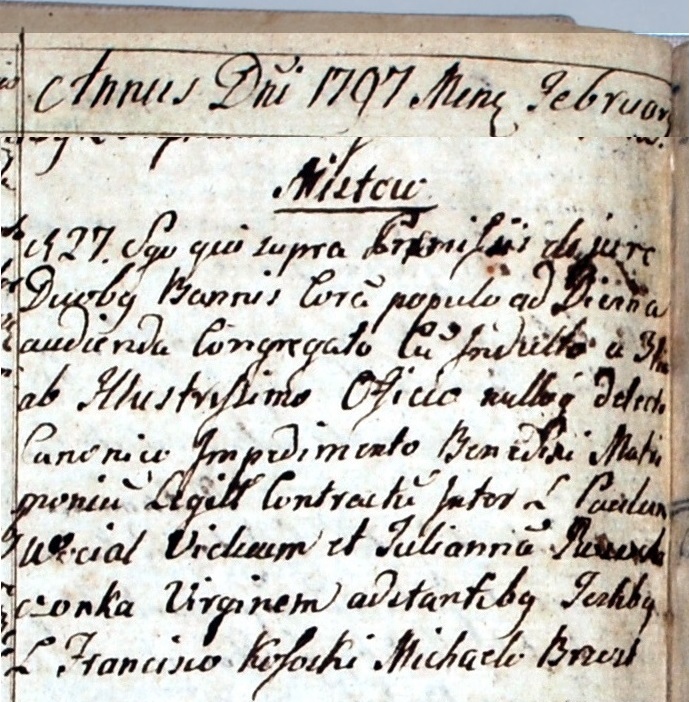 Annus Dni 1797 Mens Februar
Mistow
d 27. Ego qui supra Premissis de jure
Duobq Bannis Corā populo ad Divina
audienda Congregato Cū Indulto a 3tio
ab Illustrissimo Officio nulloq detecto
Canonico Impedimento Benedixi Matri
moniū Legitt Contractū Inter L Paulum
Viduum et Juliannā
czonka Virginem adstantibq Testibq
L Francisco Kososki Michaele